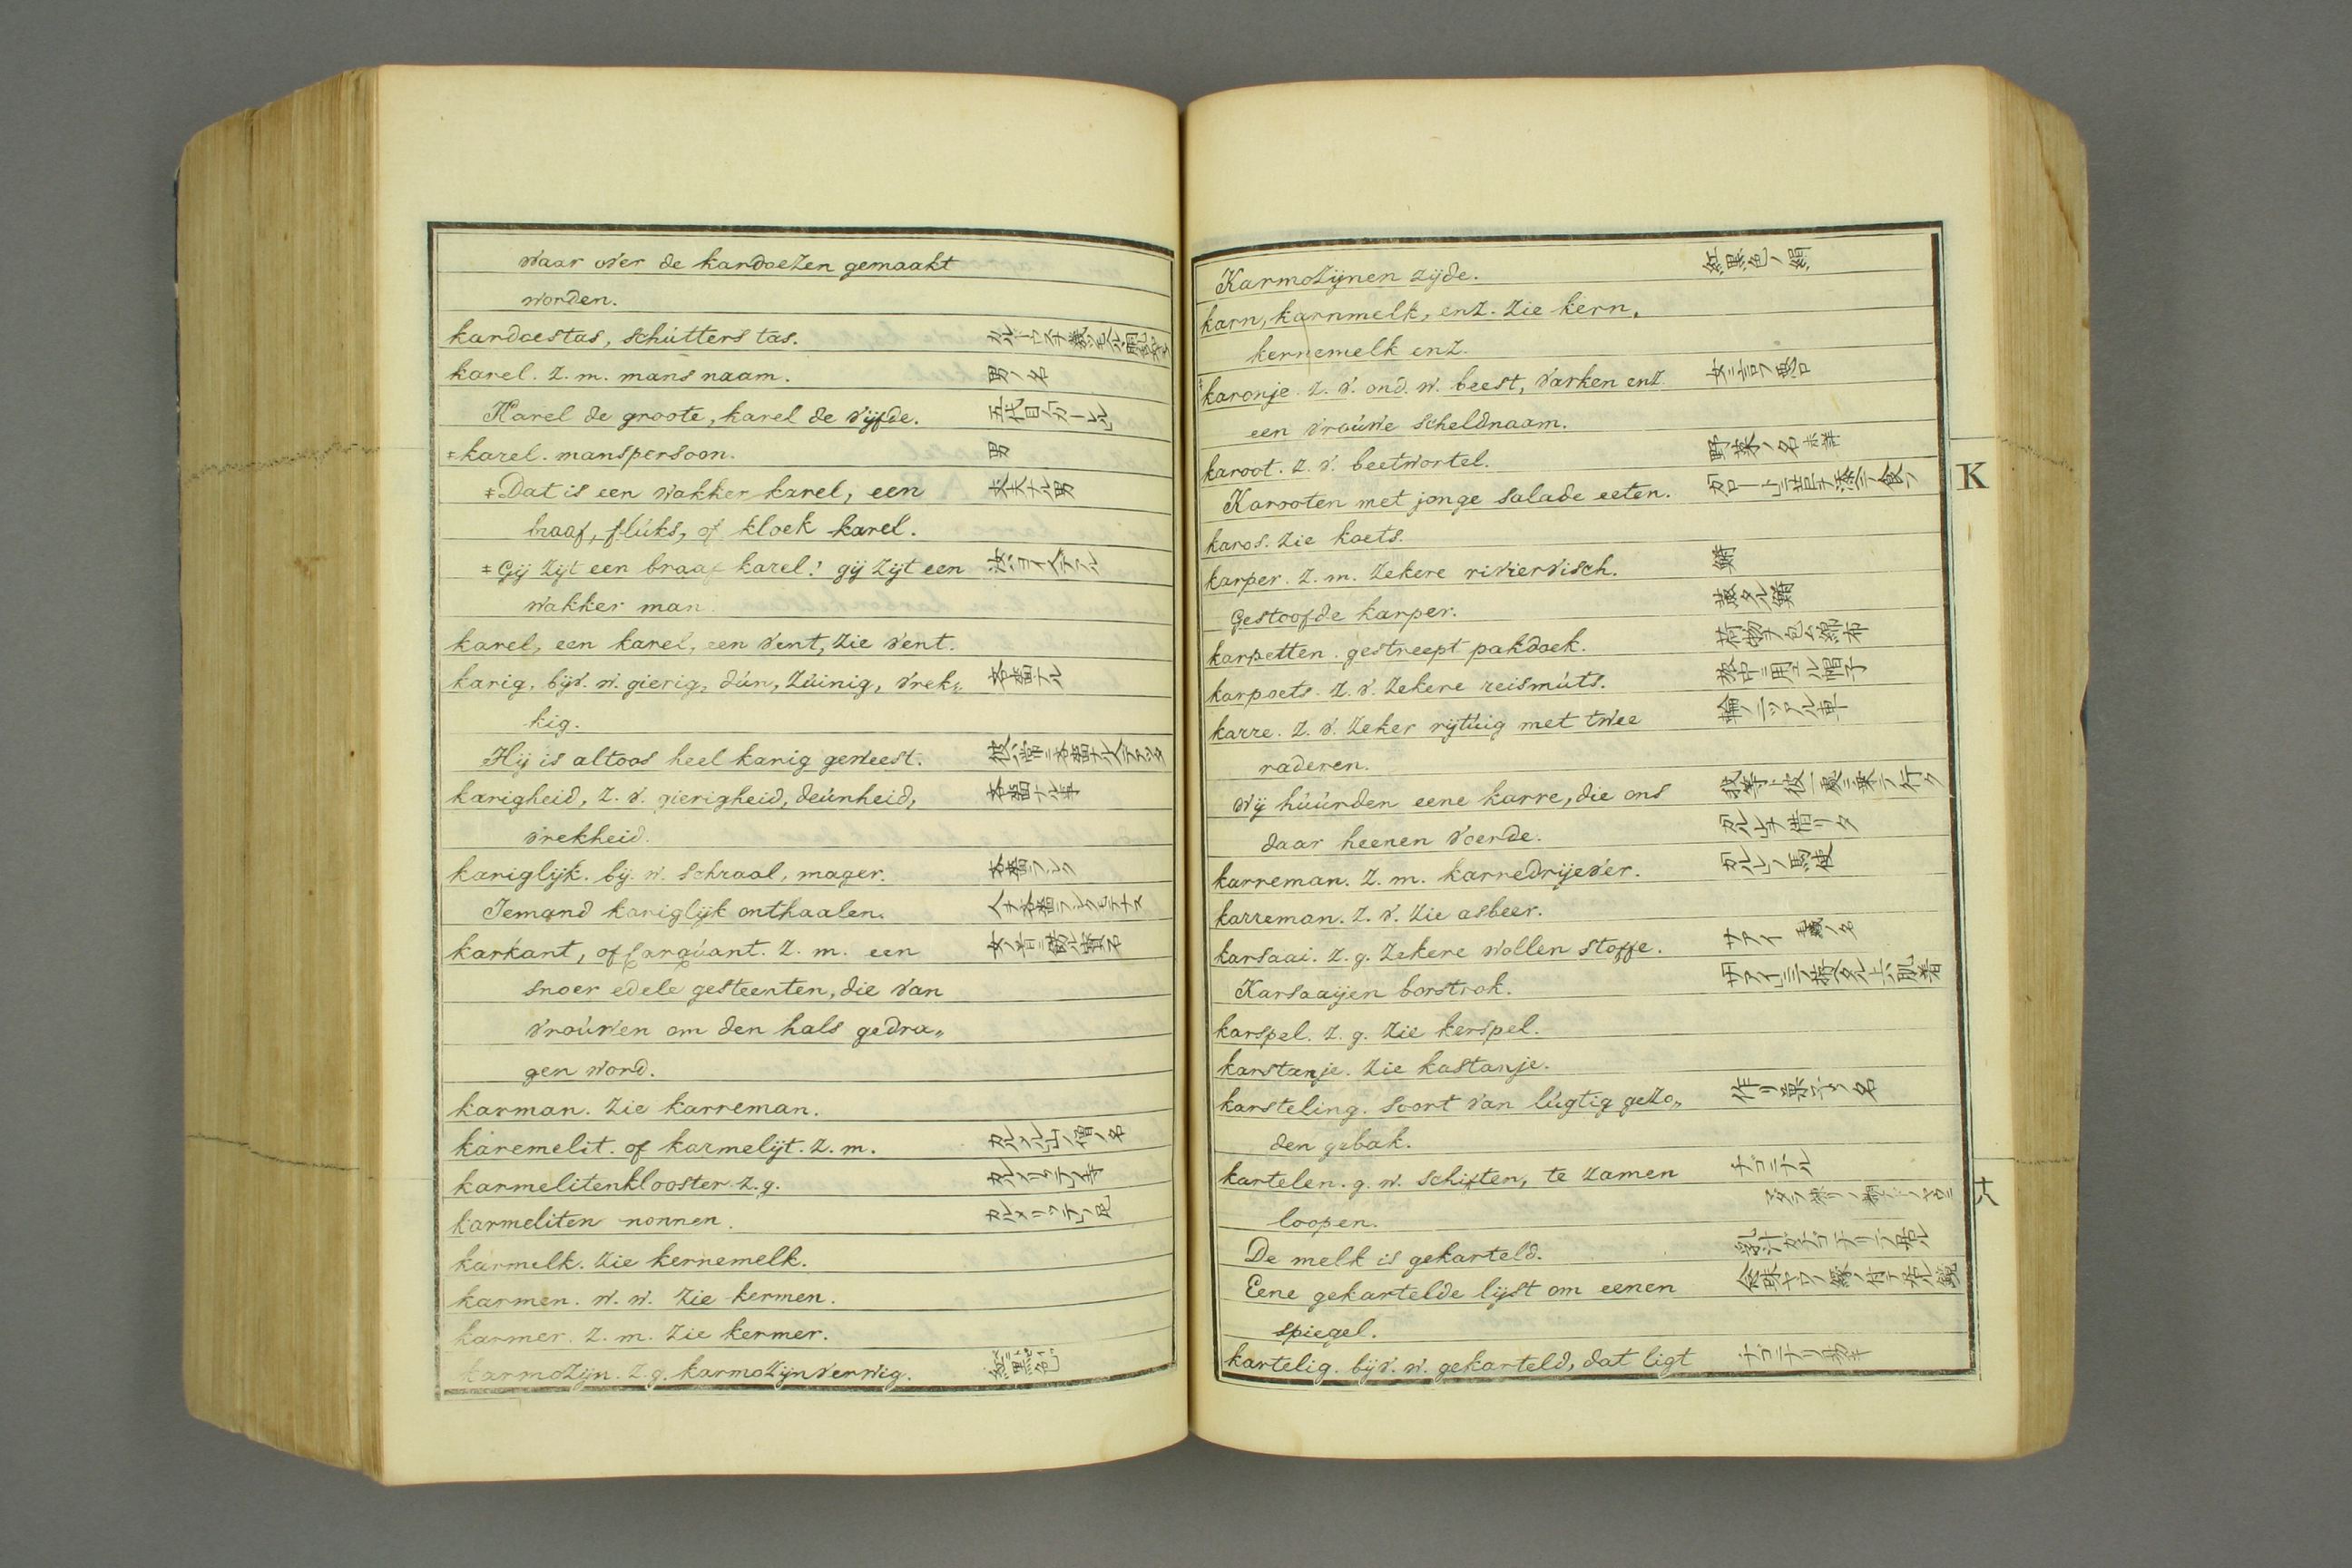 waar over de kardoezen gemaakt
worden.
kardoestas, schútters tas.
karel. z. m. mans naam. 男ノ名
Karel de groote, karel de vijfde. 五代目ノカーレル
‡karel. manspersoon. 男
‡Dat is een wakker karel, een 大丈夫ナル男
braaf, flúks, of kloek karel.
‡Gij zijt een braaf karel! gij zijt een
wakker man.
karel, een karel, een vent, zie vent.
karig, bijv. w. gierig, dún, zúinig, vrek„ 吝嗇ナル
kig.
Hij is altoos heel karig geweest. 彼ハ常ニ吝嗇ナル人デアツタ
karigheid, z. v. gierigheid, deúnheid, 吝嗇ナル事
vrekheid.
kariglijk. bij. w. schraal, mager. 吝嗇ラシク
Iemand kariglijk onthaalen.
karkant, of Carqúant. z. m. een
snoer edele gesteenten, die van
vroúwen om den hals gedra„
gen word.
karman. zie karreman.
karemelit. of karmelijt. z. m.
karmelitenklooster. z. g.
karmeliten nonnen.
karmelk. zie kernemelk.
karmen. w. w. zie kermen.
karmer. z. m. zie kermer.
karmozijn. z. g. karmozijnverwig. 紅黒色
Karmozijnen zijde. 紅黒色ノ絹
karn, karnmelk, enz. zie kern,
kernemelk enz.
‡karonje. z. v. ond. w. beest, varken enz. 女ニ言フ悪口
een vroúwe scheldnaam.
karoot. z. v. beetwortel. 野菜ノ名
Karooten met jonge salade eeten.
karos. zie koets.
karper. z. m. zekere riviervisch.
Gestoofde karper.
karpetten. gestreept pakdoek. 荷物ヲ包ム綿布
karpoets. z. v. zekere reismúts. 旅中ニ用ユル帽子
karre. z. v. zeker rijtúig met twee 輪ノ二ツアル車
raderen.
Wij húúrden eene karre, die ons 我等ハ彼処ニ乗テ行ク
daar heenen voerde. カルレヲ借リタ
karreman. z. m. karredrijever. カルレノ馬使
karreman. z. v. zie asbeer.
karsaai. z. g. zekere wollen stoffe.
Karsaaijen borstrok.
karspel. z. g. zie kerspel.
karstanje. zie kastanje.
karsteling. soort van lúgtig gezo„
den gebak.
kartelen. g. w. schiften, te zamen
loopen.
De melk is gekarteld.
Eene gekartelde lijst om eenen
spiegel.
kartelig. bijv. w. gekarteld, dat ligt
K
十六